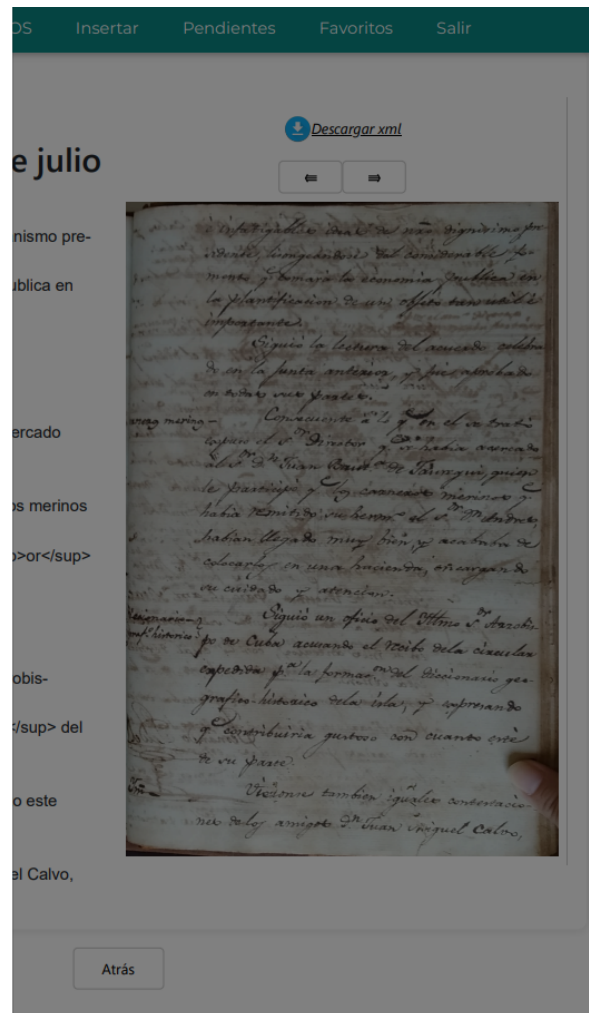 OS Insertar Pendientes Favoritos Salir
Descargar xml
e julio
⇚ ⇛
nismo pre-
ublica en
ercado
os merinos
o>or</sup>
obis-
</sup> del
o este
el Calvo,
é infatigables ideas de nrõ dignisimo pre
sidente, limgeandose del considerable fo
mento q tomará la economia publica en
la plantificacion de un objeto tan util é
importante.
Siguió la lectura del acuerdo celebra
do en la junta anterior, y fue aprobado
en todas sus partes.
merino
Consecuente á lo q en el se trató
expuso el Sor Director q se habia acercado
al Sor Dn Juan Baut de Jauregui, quien
le participó q los carneros merinos q
habia remitido su hermo el Sor Dn Andres,
habian llegado muy bien, y acababa de
colocarlos en una hacienda, encargando
su cuidado y atencion.
Siguió un oficio del Yltmo Sor Arzobis
po de Cuba acusando el recibo dela circular
expedida pa la formacon del diccionario geo-
grafico-historico dela isla, y expresando
q contribuiria gustoso con cuanto esté
de su parte.
Ydm
Vieronse tambien iguales contestacio
nes delos amigos Dn Juan Miguel Calvo,
Atrás